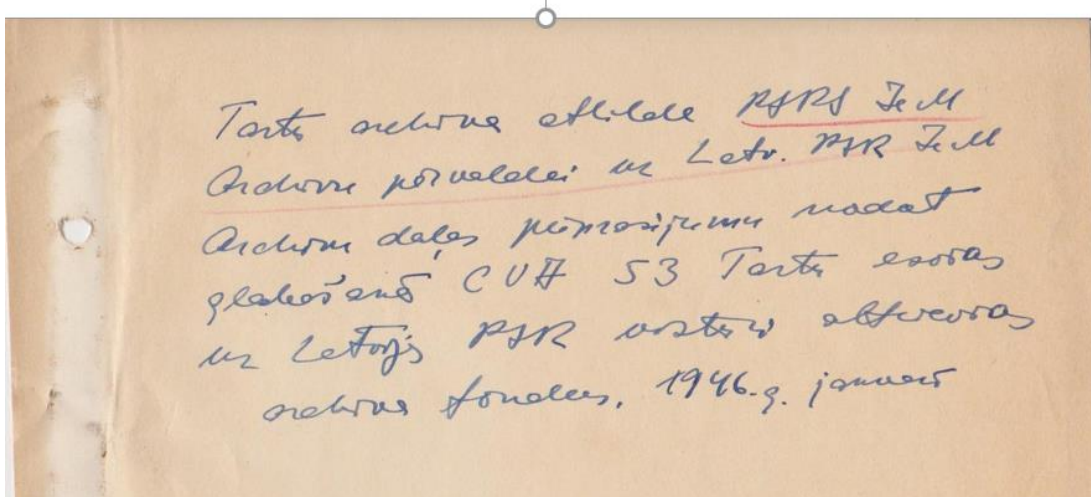 Tartu archīva atbilde PSRS IeM
Archīvu pārvaldei uz Latv. PSR IeM
Archīvu daļas pieprasījumu nodot
glabāšanā CVA 53 Tartu esošos
uz Latvijas PSR vēsturi attiecošos
archīva fondus. 1946.g. janvarī